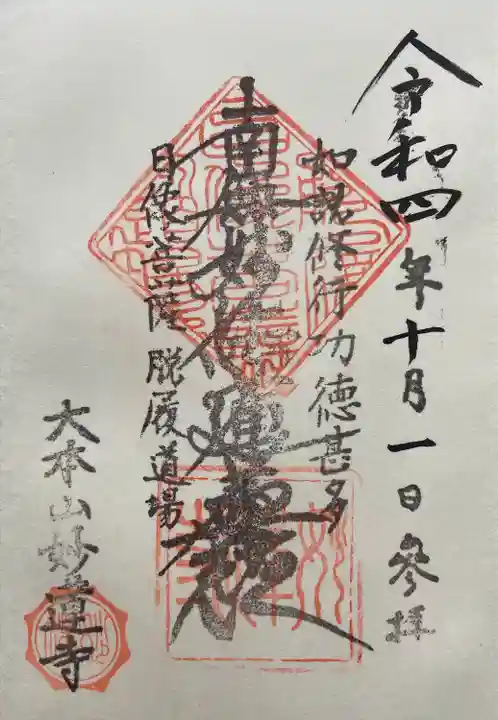 令和四年十月一日参拝
如説修行功徳甚多
南無妙法蓮華経
日像菩薩脱履道場
大本山妙蓮寺